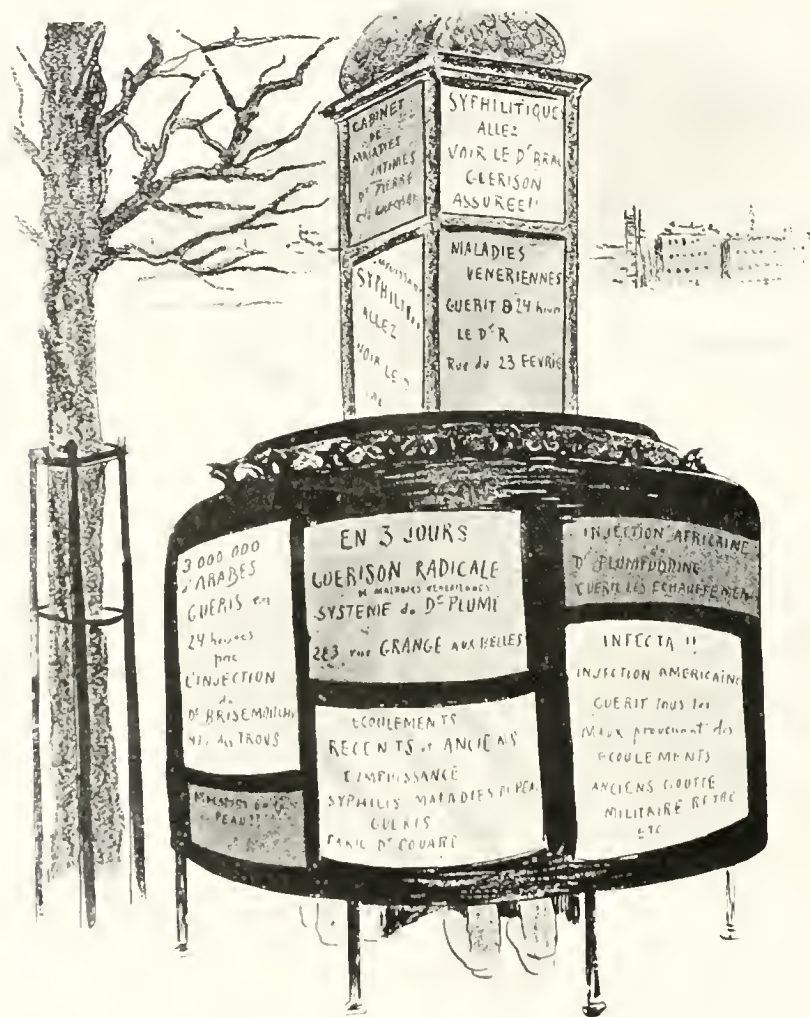 CABINET
DE
MALADIES
INTIMES
Dr PIERRE
SYPHILITIQUE
ALLEZ
VOIR LE Dr BRAC
GLERISON
ASSUREE!!
SYPHILIT
ALLEZ
VOIR LE
MALADIES
VENERIENNES
GUERIT 24 heures
LE Dr R
Rue du 23 FEVRIE
3 000 000
D'ARABES
GUERIS en
24 heures
par
L'INJECTION
du
Dr BRISEMOUCHE
des TROUS
EN 3 JOURS
GUERISON RADICALE
DE MALADIES VENERIENNES
SYSTEME du Dr PLUME
223 rue GRANGE AUX BELLES
ECOULEMENTS
RECENTS et ANCIENS
L'IMPUISSANCE
SYPHILIS MALADIES DE PEAU
GUERIS
Dr COUARD
INJECTION AFRICAINE
du
Dr PLUMPUDDING
GUERIT LES ECHAUFFEMEN
INFECTA !!
INJECTION AMERICAINE
GUERIT tous les
Maux provenant des
ECOULEMENTS
ANCIENS GOUTTE
MILITAIRE RETRE
ETC
MALADIES
PEAU